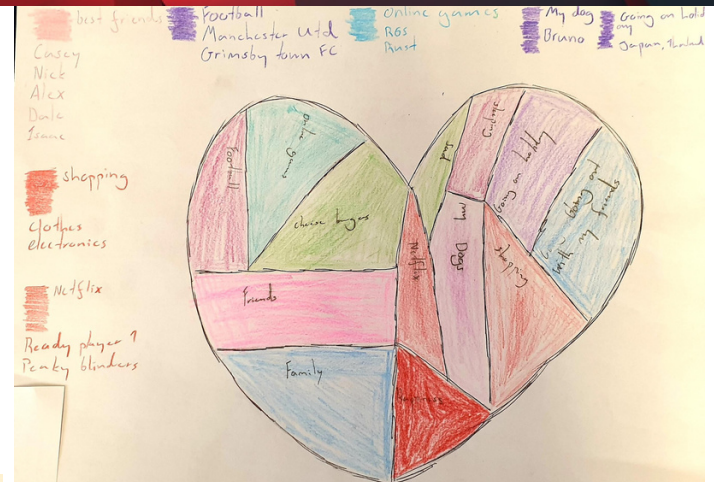 best friends
Casey
Nick
Alex
Dale
Isaac
Football
Manchester Utd
Grimsby town FC
Online games
RGS
Rust
My dog
Bruno
Going on holid
ay
Japan, Thailand
shopping
clothes
electronics
Netflix
Ready player 1
Peaky blinders
football
online games
cheese burgers
Friends
Family
Netflix
my Dogs
shopping
Going on holiday
sleeping